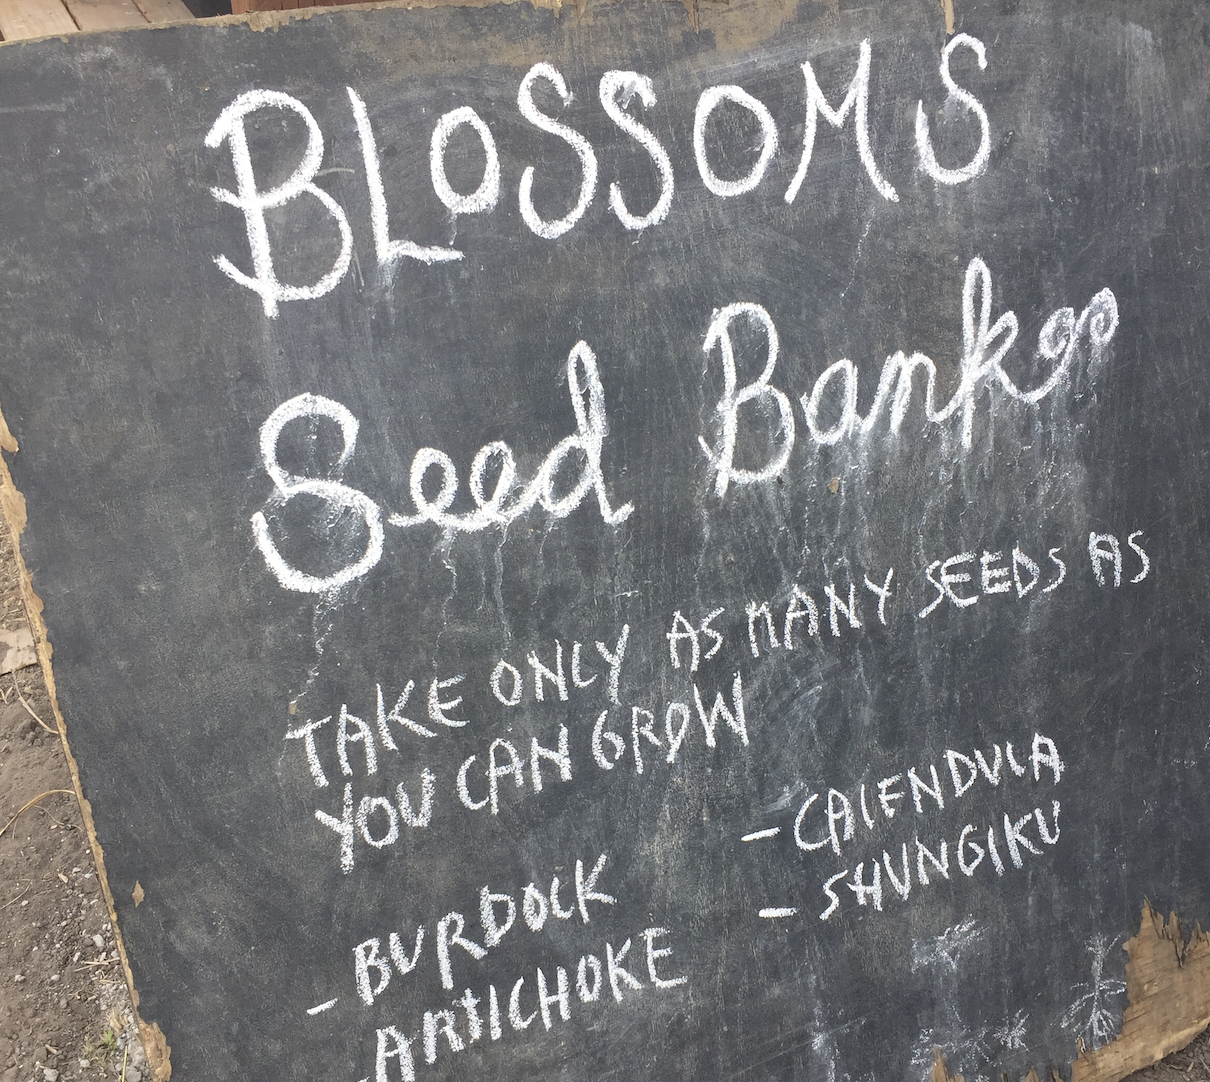 BLOSSOMS
Seed Bank
TAKE ONLY AS MANY SEEDS AS
YOU CAN GROW
- BURDOCK
- ARTICHOKE
- CALENDULA
- SHUNGIKU